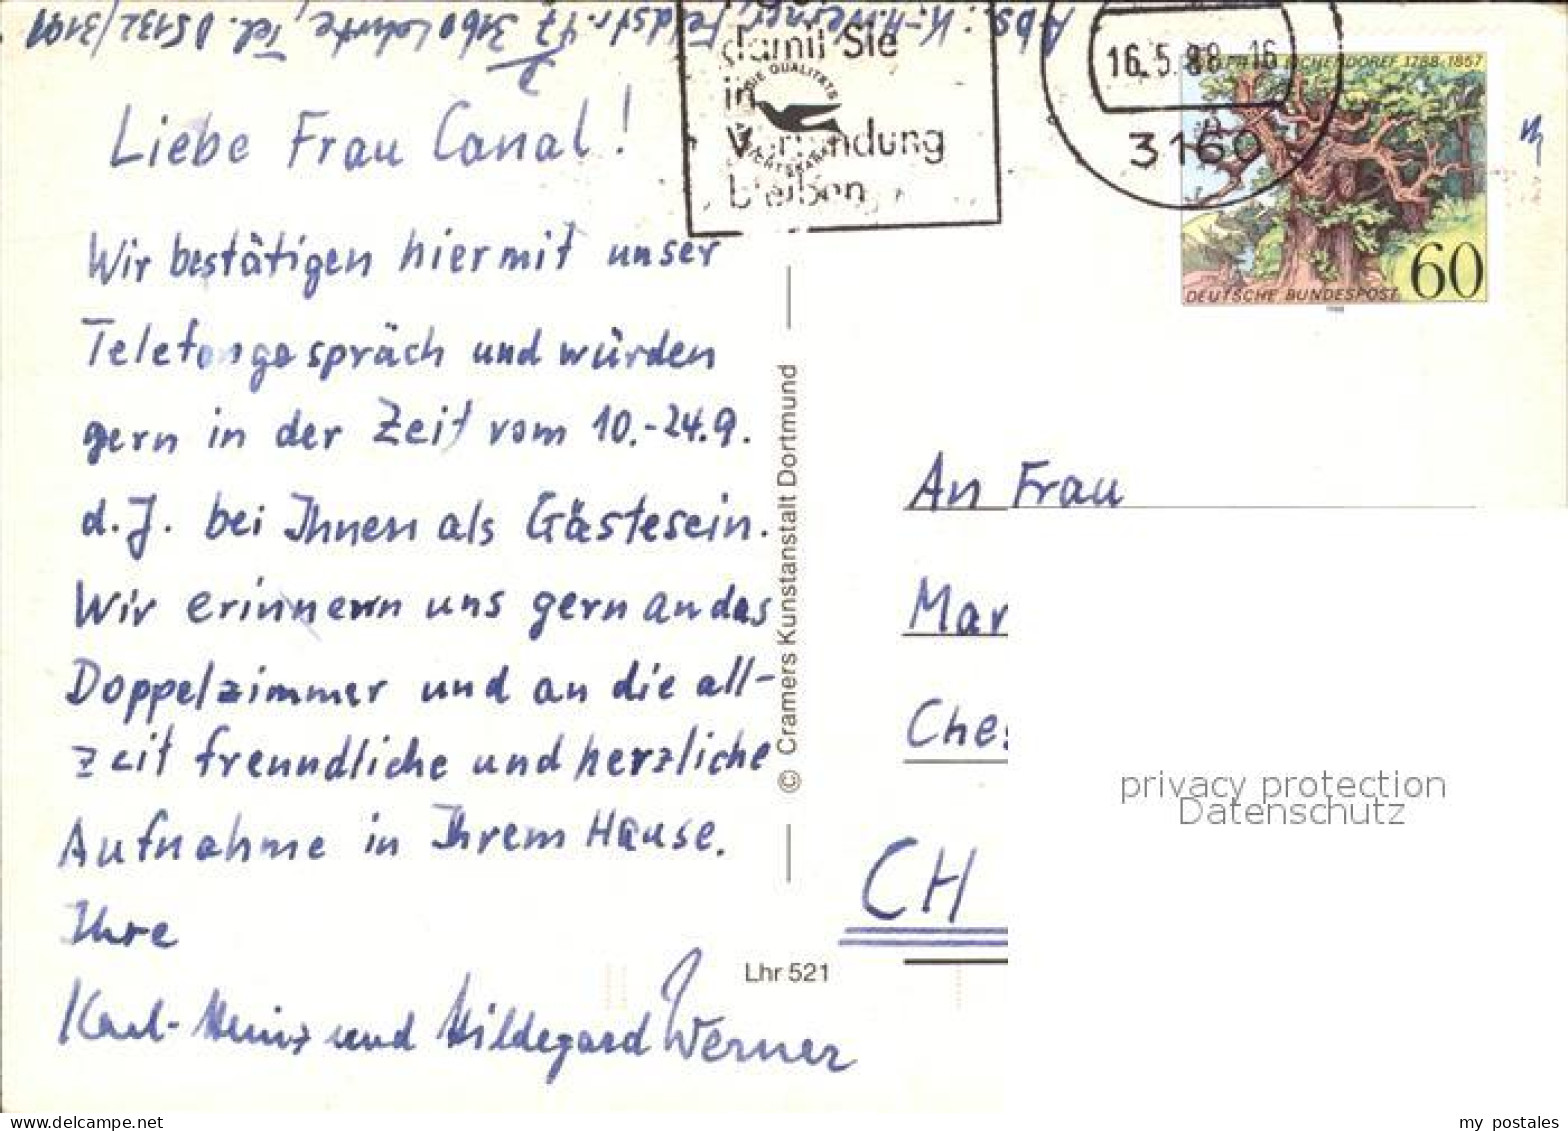 Abs.: K.-H. Werner, Feldstr. 47 3160 Lehrte, Tel. 05132/3191
damit Sie
in
Verbindung
bleiben
DIE QUALITÄTS
16.5.88-16
3160
JOSEPH V. EICHENDORFF 1788-1857
DEUTSCHE BUNDESPOST
60
1988
Liebe Frau Canal!
Wir bestätigen hiermit unser
Telefongespräch und würden
gern in der Zeit vom 10.-24.9.
d.J. bei Ihnen als Gäste sein.
Wir erinnern uns gern an das
Doppelzimmer und an die all-
zeit freundliche und herzliche
Aufnahme in Ihrem Hause.
Ihre
Karl-Heinz und Hildegard Werner
© Cramers Kunstanstalt Dortmund
Lhr 521
An Frau
Mar
Ches
CH
privacy protection
Datenschutz
my postales